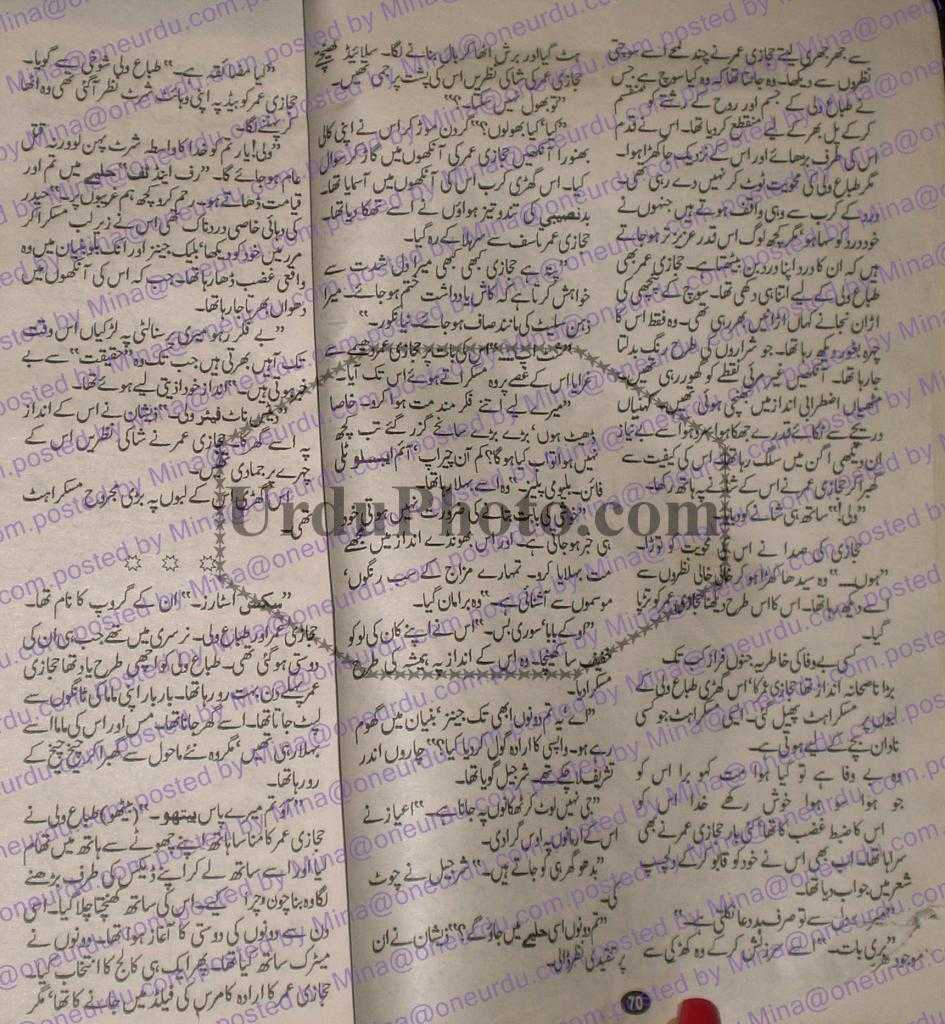 سے جھرجھری لیتے حجازی عمر نے چند لمحے اسے سوچتی
نظروں سے دیکھا۔ وہ جانتا تھا کہ وہ کیا سوچ رہا ہے جس
نے طباع ولی کے جسم اور روح کے رشتے کو
کر کے پل بھر کے لیے منقطع کر دیا تھا۔ اس نے قدم
اس کی طرف بڑھائے اور اس کے نزدیک جا کھڑا ہوا۔
مگر طباع ولی کی محویت ٹوٹ کر نہیں دے رہی تھی۔
درد کے کرب سے وہی واقف ہوتے ہیں جنہوں نے
خود درد کو سہا ہو، مگر کچھ لوگ اس قدر عزیز تر ہو جاتے
ہیں کہ ان کا درد اپنا درد بن بیٹھتا ہے۔ حجازی عمر بھی
طباع ولی کے لیے اتنا ہی دکھی تھا۔ سوچ کے پنچھی کی
اڑان نجانے کہاں اڑانیں بھر رہی تھی۔ وہ فقط اس کا
چہرہ بغور دیکھ رہا تھا۔ جو شراروں کی طرح رنگ بدلتا
جا رہا تھا۔ آنکھیں غیر مرئی نقطے کو گھور رہی تھیں
مٹھیاں اضطراری انداز میں بھنچی ہوئی تھیں۔ کہنیاں
دریچے سے ٹکائے قدرے جھکا ہوا وہ اسے بے نیاز
ان دیکھی اگن میں سلگ رہا تھا۔ اس کی کیفیت سے
گھبرا کر حجازی عمر نے اس کے شانے پہ ہاتھ رکھا۔
”ولی!“ ساتھ ہی شانے کو دبایا۔
حجازی کی صدا نے اس کی محویت کو توڑا۔
”ہوں۔“ وہ سیدھا کھڑا ہو کر خالی خالی نظروں سے
اسے دیکھ رہا تھا۔ اس کا اس طرح دیکھنا حجازی عمر کو تڑپا
گیا۔
کسی بے وفا کی خاطر یہ جنوں فراز کب تک
بڑا ناصحانہ انداز تھا حجازی کا، اس گھڑی طباع ولی کے
لبوں پر مسکراہٹ پھیل گئی۔ ایسی مسکراہٹ جو کسی
نادان بچے کے لیے ہوتی ہے۔
وہ بے وفا ہے تو کیا ہوا مت کہو برا اس کو
جو ہوا سو ہوا خوش رکھے خدا اس کو
اس کا ضبط غضب کا تھا، کئی بار حجازی عمر نے بھی
سراہا تھا۔ اب بھی اس نے خود کو قابو کر کے دلچسپ
شعر میں جواب دیا تھا۔
”میرے دل سے تو صرف بددعا نکلتی ہے۔“
”بری بات۔“ اسے سرزنش کر کے وہ کھڑکی سے
ہٹ گیا اور برش اٹھا کر بال بنانے لگا۔ سلائیڈ کھینچے
حجازی عمر کی شاکی نظریں اس کی پشت پر جمی تھیں۔
”تو بھول نہیں سکتا۔؟“
”کیا، کیا بھولوں؟“ گردن موڑ کر اس نے اپنی کالی
بھنورا آنکھیں حجازی عمر کی آنکھوں میں گاڑ کر سوال
کیا۔ اس گھڑی کرب اس کی آنکھوں میں آ سمایا تھا۔
بدنصیبی کی تند و تیز ہواؤں نے اسے تھکا دیا تھا۔
حجازی عمر تاسف سے سر ہلا کے رہ گیا۔
”پتا ہے حجازی کبھی کبھی میرا دل شدت سے
خواہش کرتا ہے کہ کاش یادداشت ختم ہو جائے۔ میرا
ذہن سلیٹ کی مانند صاف ہو جائے۔ نیا نکور۔“
”شٹ اپ۔“ اس کی بات پر حجازی عمر غصے سے
غرایا اس کے غصے پر وہ مسکراتے ہوئے اس تک آیا۔
”میرے لیے اتنے فکرمند مت ہوا کرو۔ خاصا
ڈھیٹ ہوں، بڑے بڑے سانحے گزر گئے تب کچھ
نہیں ہوا تو اب کیا ہوگا؟ کم آن چیئر اپ، آئم ابسلوٹلی
فائن۔ بلیو می پلیز۔“ وہ اسے بہلا رہا تھا۔
نہیں ہوتی خود
ہی خبر ہو جاتی ہے۔ اور اس بھونڈے انداز میں مجھے
مت بہلایا کرو۔ تمہارے مزاج کے سب رنگوں،
موسموں سے آشنائی ہے۔“ وہ برا مان گیا۔
”اوکے بابا، سوری بس۔“ اس نے اپنے کان کی لو کو
خفیف سا کھینچا۔ وہ اس کے انداز پہ ہمیشہ کی طرح
مسکرا دیا۔
”اے، یہ تم دونوں ابھی تک جینز، بنیان میں گھوم
رہے ہو۔ واپسی کا ارادہ گول کر دیا کیا؟“ چاروں اندر
تشریف لا چکے تھے۔ شرجیل گویا تھا۔
”جی نہیں لوٹ کر ٹھکانوں پہ جانا ہے۔“ اعیاز نے
اس کے ارمانوں پہ اوس گرا دی۔
”بدھو گھر ہی کو جاتے ہیں۔“ شرجیل نے چوٹ
کی۔
”تم دونوں اسی حلیے میں جاؤ گے؟“ ذیشان نے ان
پر تنقیدی نظر ڈالی۔
”کیا مضائقہ ہے۔“ طباع ولی شوخی سے گویا۔
حجازی عمر کو بیڈ پہ اپنی وہائٹ شرٹ نظر آ گئی تھی وہ اٹھا
کر پہننے لگا۔
”ولی! یار تم کو خدا کا واسطہ شرٹ پہن لو ورنہ قتل
عام ہو جائے گا۔ ”رف اینڈ ٹف“ حلیے میں تم اور
قیامت ڈھاتے ہو۔ رحم کرو کچھ ہم غریبوں پر۔“ حیدر
کی دہائی خاصی دردناک تھی اس نے زیر لب مسکرا کر
مرر میں خود کو دیکھا، بلیک جینز اور بنیان میں وہ
واقعی غضب ڈھا رہا تھا۔ جب کہ اس کی آنکھوں میں
دھواں بھرتا جا رہا تھا۔
”بے فکر رہو میری پرسنالٹی پہ لڑکیاں اس وقت
تک آہیں بھرتی ہیں جب تک وہ ”حقیقت“ سے بے
خبر ہوتی ہیں۔“ انداز خود اذیتی لیے ہوئے تھا۔
”دیٹس ناٹ فیئر ولی۔“ ذیشان نے اس کے انداز
پہ اسے گھرکا۔ حجازی عمر نے شاکی نظریں اس کے
چہرے پر جما دی تھیں۔
اس گھڑی اس کے لبوں پہ بڑی مجروح مسکراہٹ
تھی۔
☼ ☼ ☼
اسٹارز۔“ ان کے گروپ کا نام تھا۔
حجازی عمر اور طباع ولی۔ نرسری میں تھے جب ہی ان کی
دوستی ہو گئی تھی۔ طباع ولی کو اچھی طرح یاد تھا حجازی
عمر پہلے دن بہت رو رہا تھا۔ بار بار اپنی ماما کی ٹانگوں سے
لپٹ جاتا تھا۔ اسے گھر جانا تھا۔ مس اور اس کی ماما اسے
بہلا رہی تھیں، مگر وہ نئے ماحول سے گھبرا کر چیخ چیخ کے
رو رہا تھا۔
”آؤ تم میرے پاس بیتھو۔“ (بیٹھو) طباع ولی نے
حجازی عمر کا منا سا ہاتھ اپنے چھوٹے سے ہاتھ میں تھام
لیا اور اسے ساتھ لے کر اپنے ڈیسک کی طرف بڑھنے
لگا وہ بنا چون و چرا کیے۔ اس کی ساتھ کھنچتا چلا گیا۔ اسی
دن سے دونوں کی دوستی کا آغاز ہوا تھا۔ دونوں نے
میٹرک ساتھ کیا تھا۔ پھر ایک ہی کالج کا انتخاب کیا۔
حجازی عمر کا ارادہ کامرس کی فیلڈ میں جانے کا تھا، مگر
70
UrduPhoto.com
Mina@oneurdu.com.posted by Mina@oneurdu.com